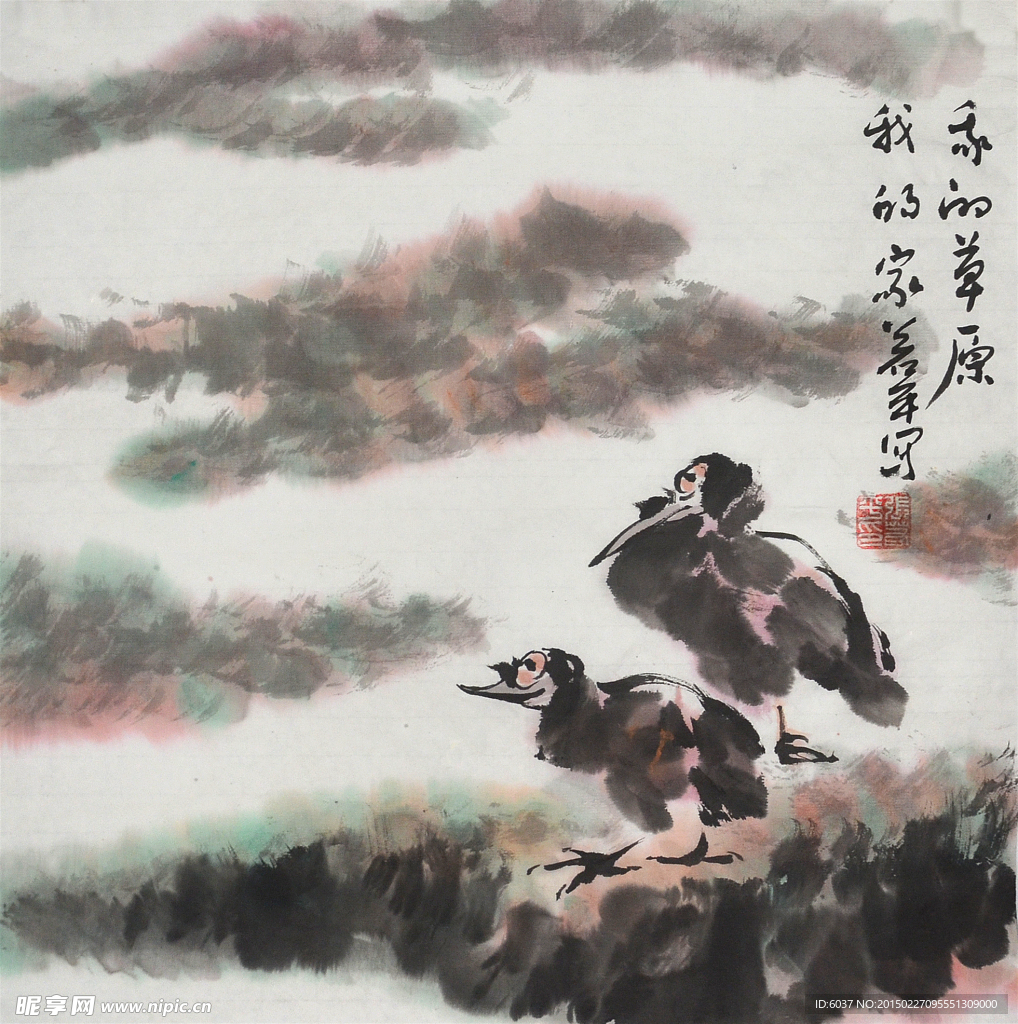 我的草原
我的家 若平写
昵享网 www.nipic.cn
ID:6037 NO:20150227095551309000